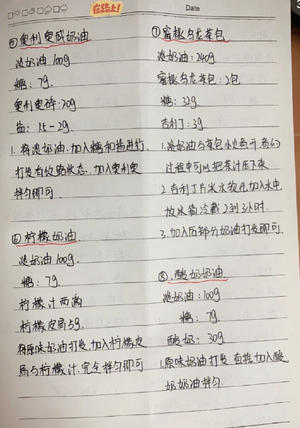 在路上!
Date
②奥利奥咸奶油
淡奶油100g
糖:7g
奥利奥碎:20g
盐:1g-2g
1.将淡奶油,加入糖和盐进行
打发有纹路状态,加入奥利奥
拌匀即可
④柠檬奶油
淡奶油100g
糖:7g
柠檬汁两滴
柠檬皮屑5g
将原味奶油打发,加入柠檬皮
屑与柠檬汁.完全拌匀即可
①蜜桃乌龙茶包
淡奶油:240g
蜜桃乌龙茶:2包
糖:32g
吉利丁:3g
1.淡奶油与茶包小火煮开,煮的
过程中可以把茶汁压下来
2.吉利丁片冰水放入加入中
放冰箱冷藏2到3小时
3.加入后部分奶油打发即可
③.酸奶奶油
淡奶油:100g
糖:7g
酸奶:30g
1.原味奶油打发,直接加入酸
奶奶油拌匀.